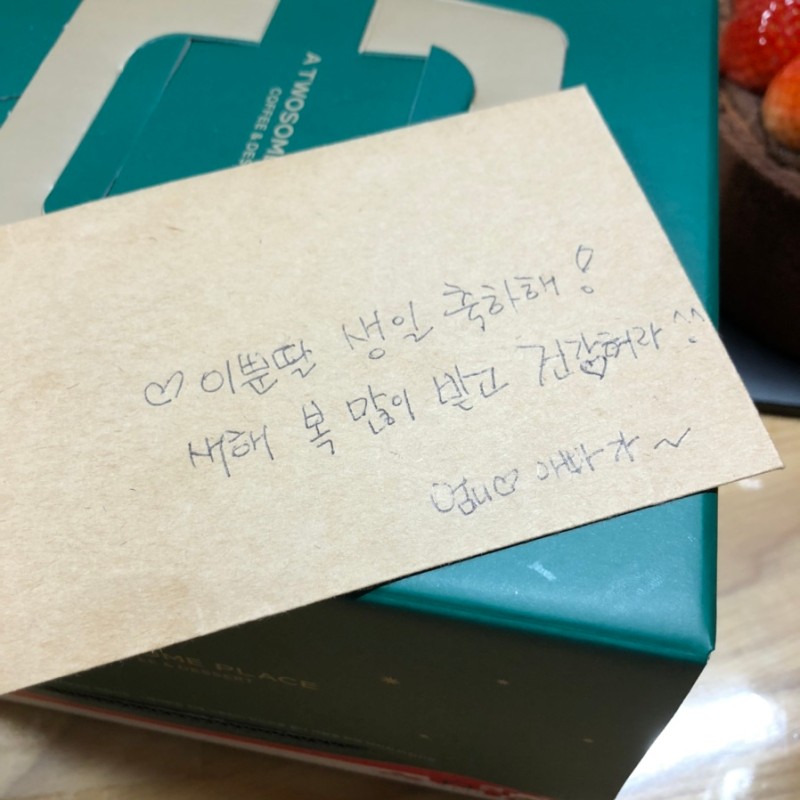 A TWOSOME
COFFEE & DES
♡ 이쁜딸 생일 축하해!
새해 복 많이 받고 건강해라 ^^
엄마♡아빠가~
OME PLACE
& DESSERT